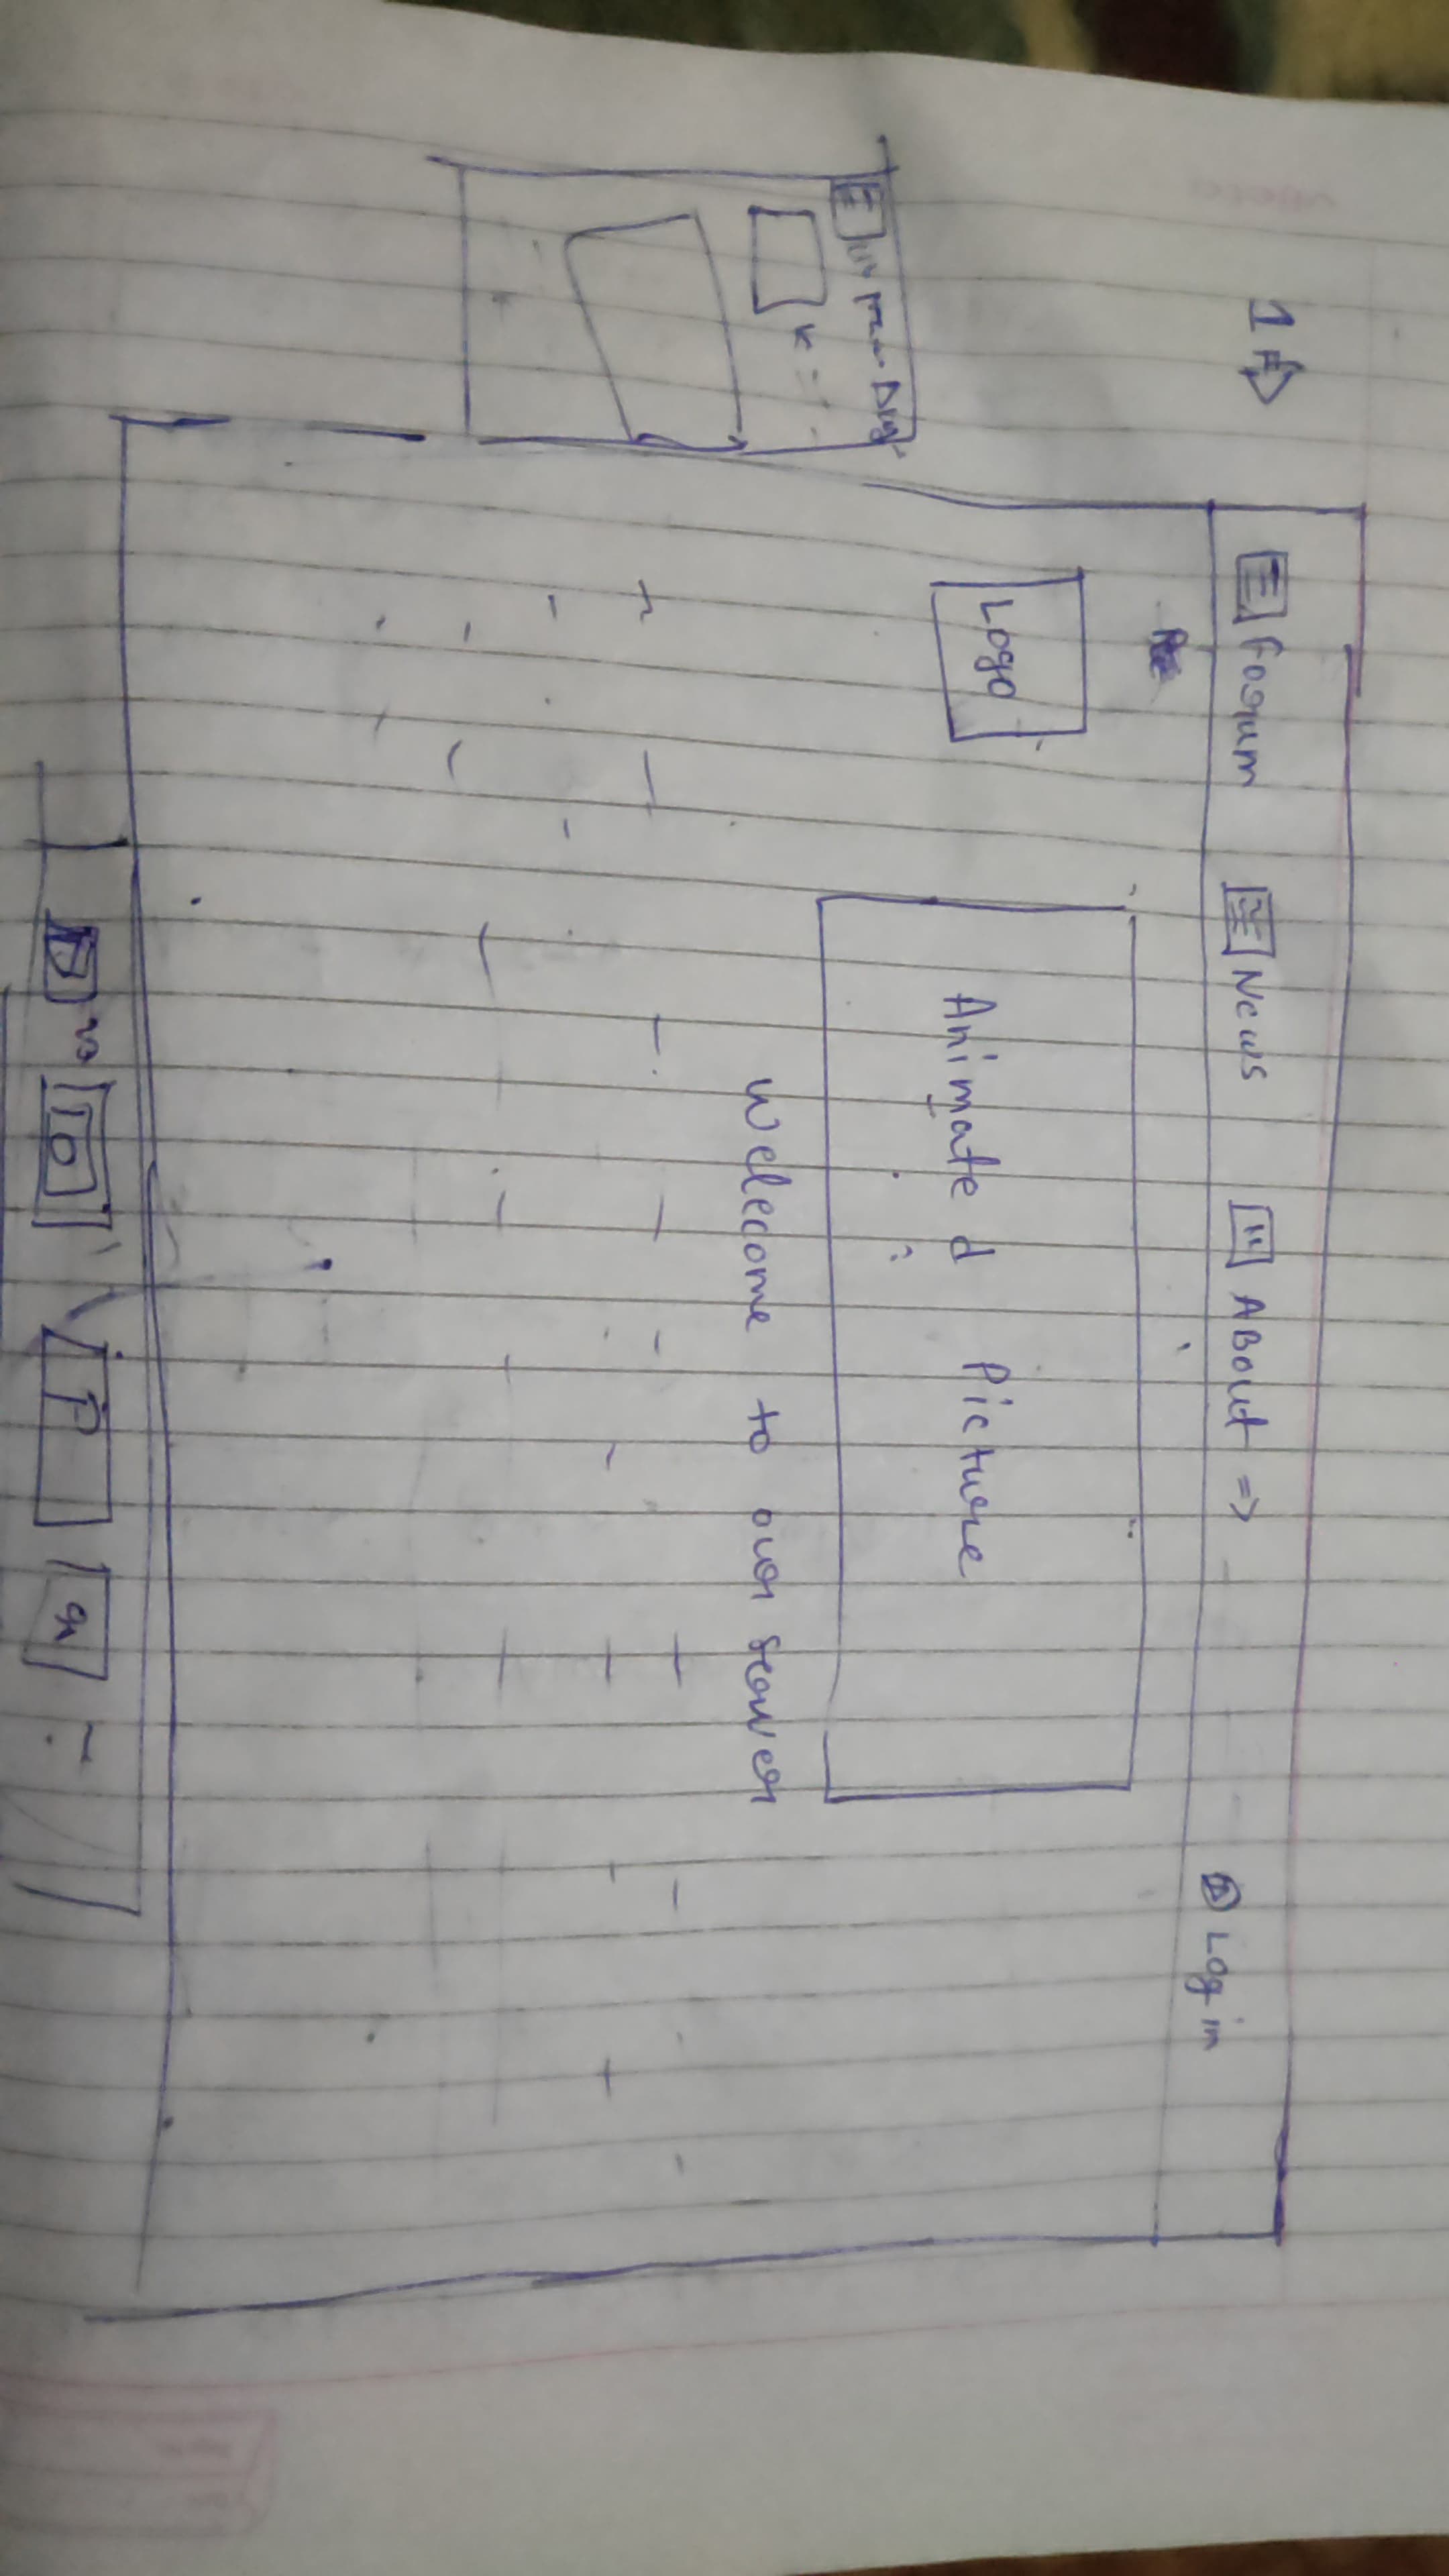 1
Forum News ABout =>
Log in
Logo
Animated Picture
Welecome to our server
P